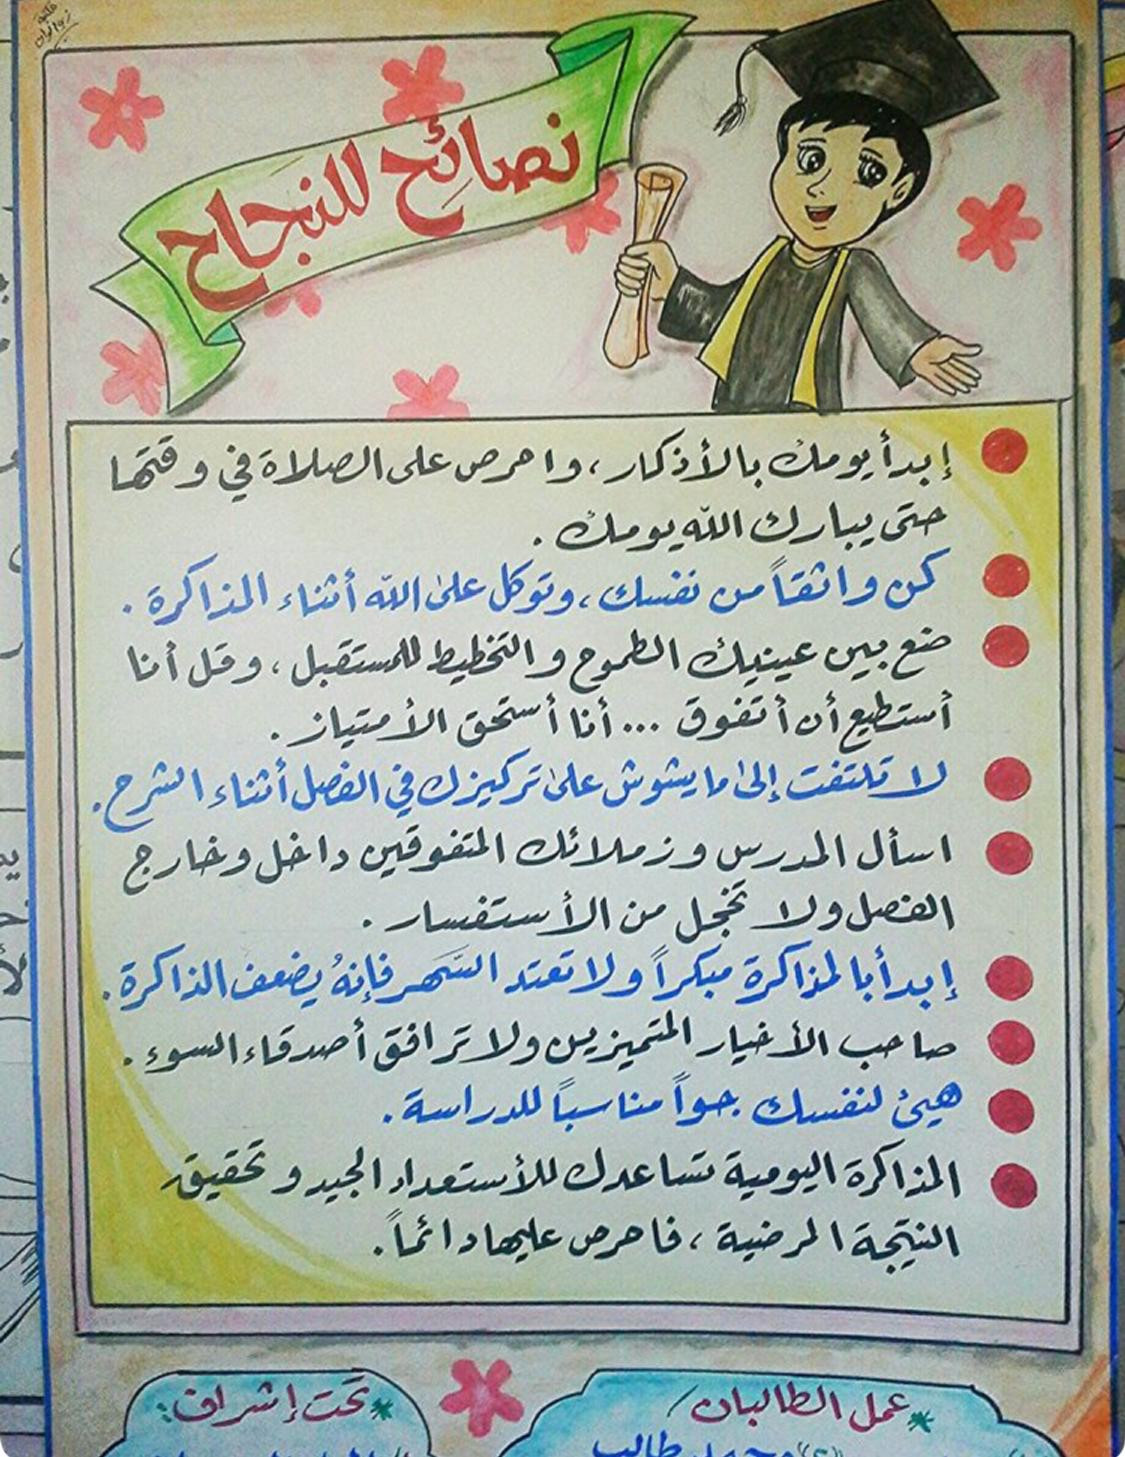 نصائح للنجاح
إبدأ يومك بالأذكار، واحرص على الصلاة في وقتها
حتى يبارك الله يومك.
كن واثقاً من نفسك، وتوكل على الله أثناء المذاكرة.
ضع بين عينيك الطموح والتخطيط للمستقبل، وقل أنا
أستطيع أن أتفوق ... أنا أستحق الأمتياز.
لا تلتفت إلى ما يشوش على تركيزك في الفصل أثناء الشرح.
اسأل المدرس وزملائك المتفوقين داخل وخارج
الفصل ولا تخجل من الأستفسار.
إبدأ بالمذاكرة مبكراً ولا تعتد السَهر فإنهُ يضعف الذاكرة.
صاحب الأخيار المتميزين ولا ترافق أصدقاء السوء.
هيئ لنفسك جواً مناسباً للدراسة.
المذاكرة اليومية تساعدك للأستعداد الجيد و تحقيق
النتيجة المرضية، فاحرص عليها دائماً.
*عمل الطالبان/
*تحت إشراف: